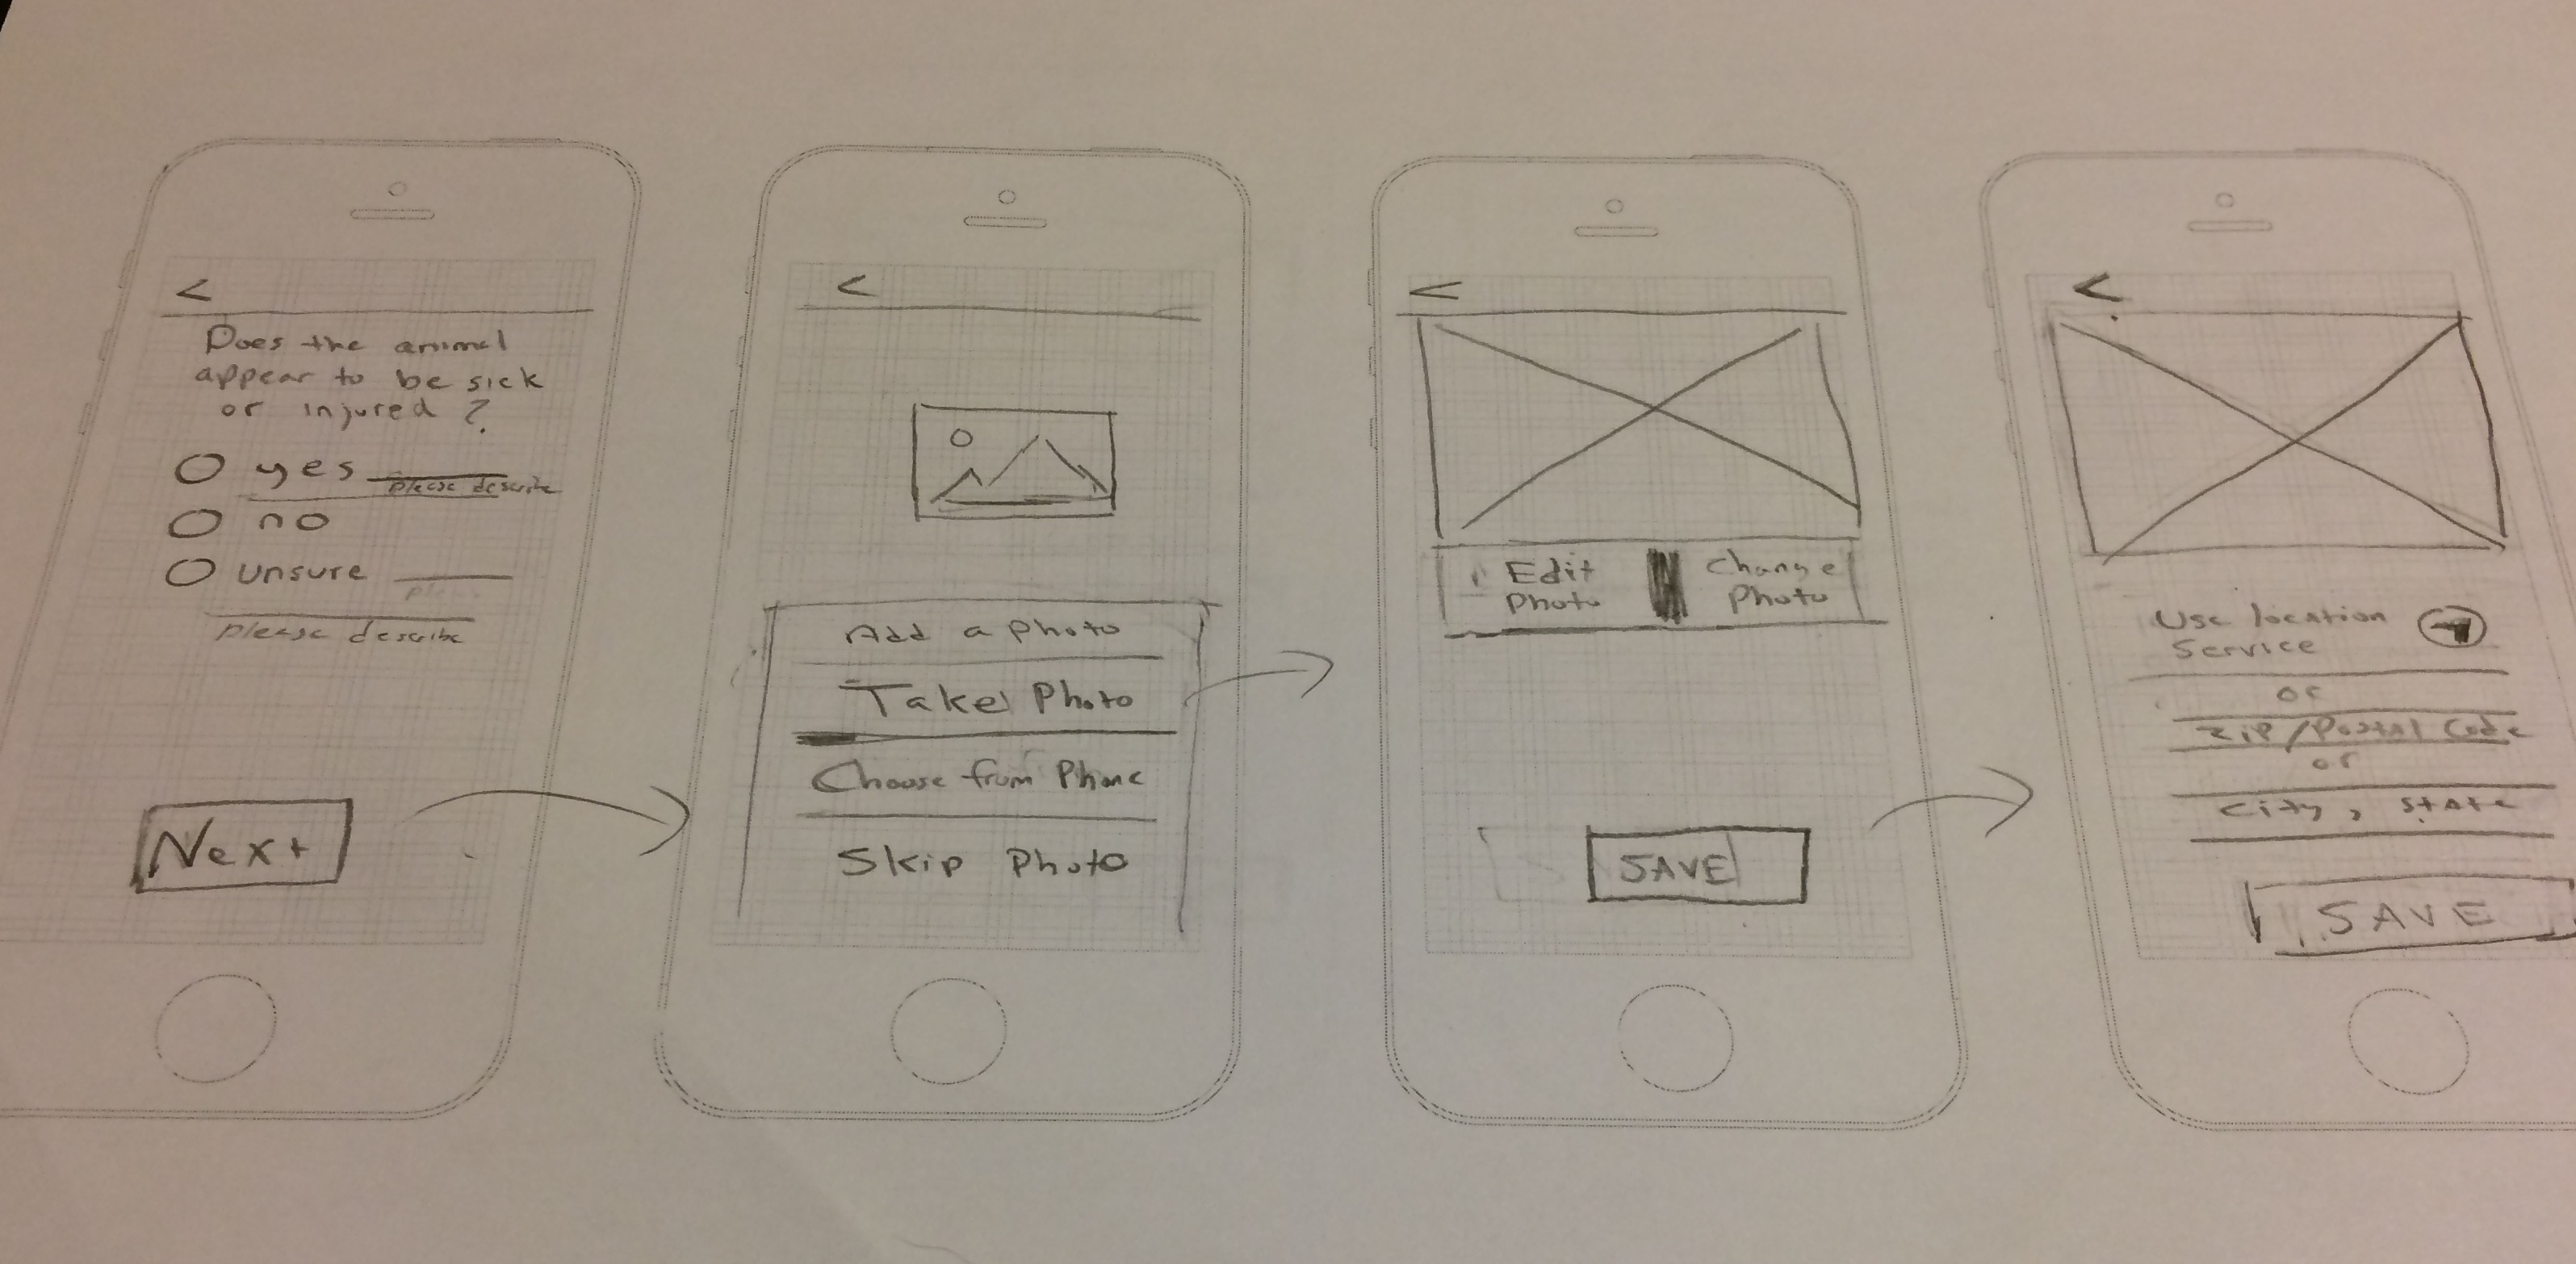 <
Does the animal
appear to be sick
or injured ?
yes
please describe
no
unsure
please describe
Next
<
Add a photo
Take Photo
Choose from Phone
Skip Photo
<
Edit
Photo
Change
Photo
SAVE
<
Use location
Service
or
Zip/Postal Code
or
City, State
SAVE